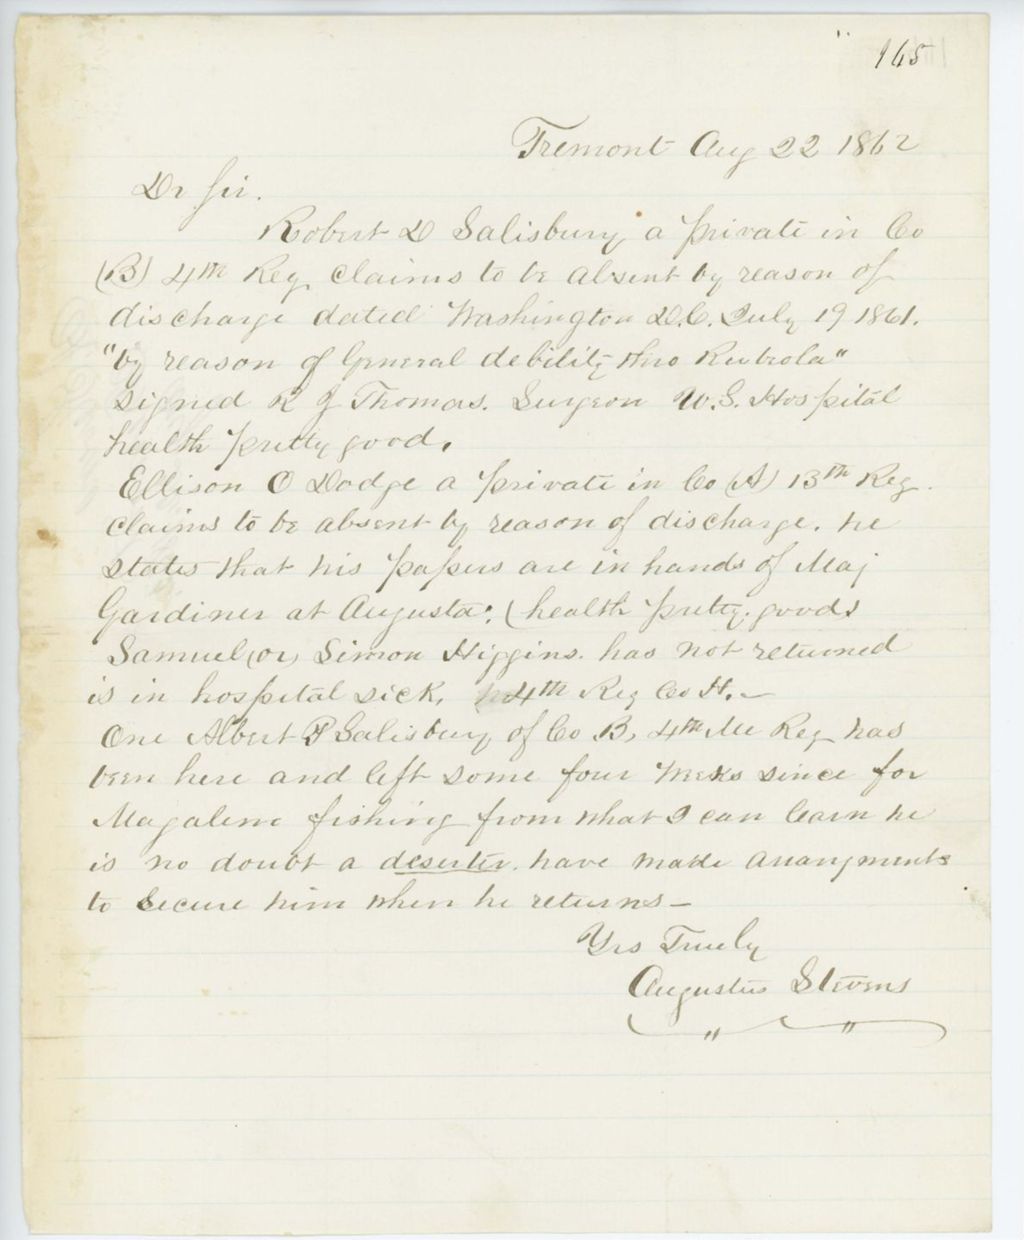 165
Tremont Aug 22 1862
Dr Sir.
Robert D Salisbury a private in Co
(B) 4th Reg claims to be absent by reason of
discharge dated Washington D.C. July 19 1861.
"by reason of General debility
signed R J Thomas. Surgeon U.S. Hospital
health pretty good.
Ellison O Dodge a private in Co (A) 13th Reg.
claims to be absent by reason of discharge. he
states that his papers are in hands of Maj
Gardiner at Augusta: (health pretty good)
Samuel (or) Simon Higgins. has not returned
is in hospital sick, 4th Reg Co H. -
One Albert P Salisbury of Co B, 4th Me Reg has
been here and left some four weeks since for
Magalene fishing from what I can learn he
is no doubt a deserter. have made arrangments
to secure him when he returns -
Yrs Truely
Augustus Stevens